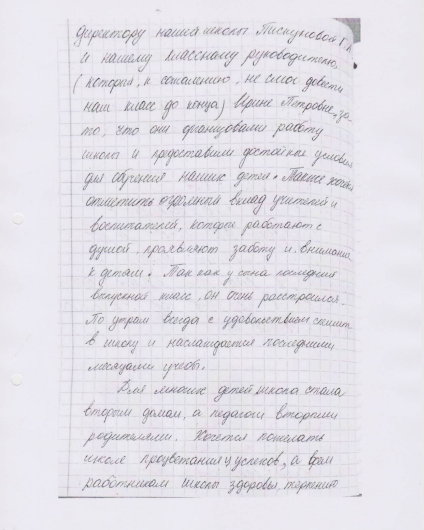 директору нашей школы Пискуновой Г.А.
и нашему классному руководителю
(который, к сожалению, не смог довести
наш класс до конца) Ирине Петровне, за
то, что они организовали работу
школы и предоставили достойные условия
для обучения наших детей. Также хочется
отметить огромный вклад учителей и
воспитателей, которые работают с
душой, проявляют заботу и внимание
к детям. Так как у сына последний
выпускной класс, он очень расстроился.
По утрам всегда с удовольствием спешит
в школу и наслаждается последними
месяцами учебы.
Для многих детей школа стала
вторым домом, а педагоги вторыми
родителями. Хочется пожелать
школе процветания и успехов, а всем
работникам школы здоровья, терпения